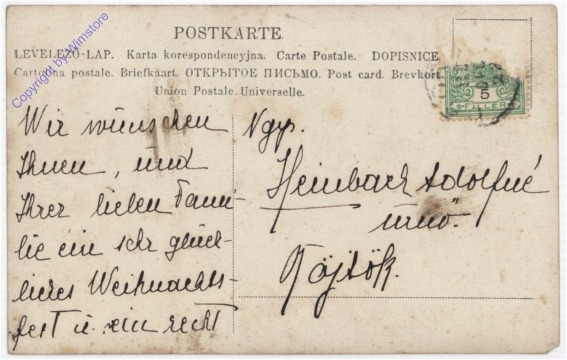 Copyright by Wimstore
POSTKARTE.
LEVELEZŐ-LAP. Karta korespondencyjna. Carte Postale. DOPISNICE
Cartolina postale. Briefkaart. ОТКРЫТОЕ ПИСЬМО. Post card. Brevkort
Union Postale Universelle.
5
FILLÉR
Wir wünschen
Ihnen, und
Ihrer lieben Fami-
lie ein sehr glück-
liches Weihnachts-
fest u. ein recht
Ngys.
Heimbach Adolfné
úrnő.
Röjtök.